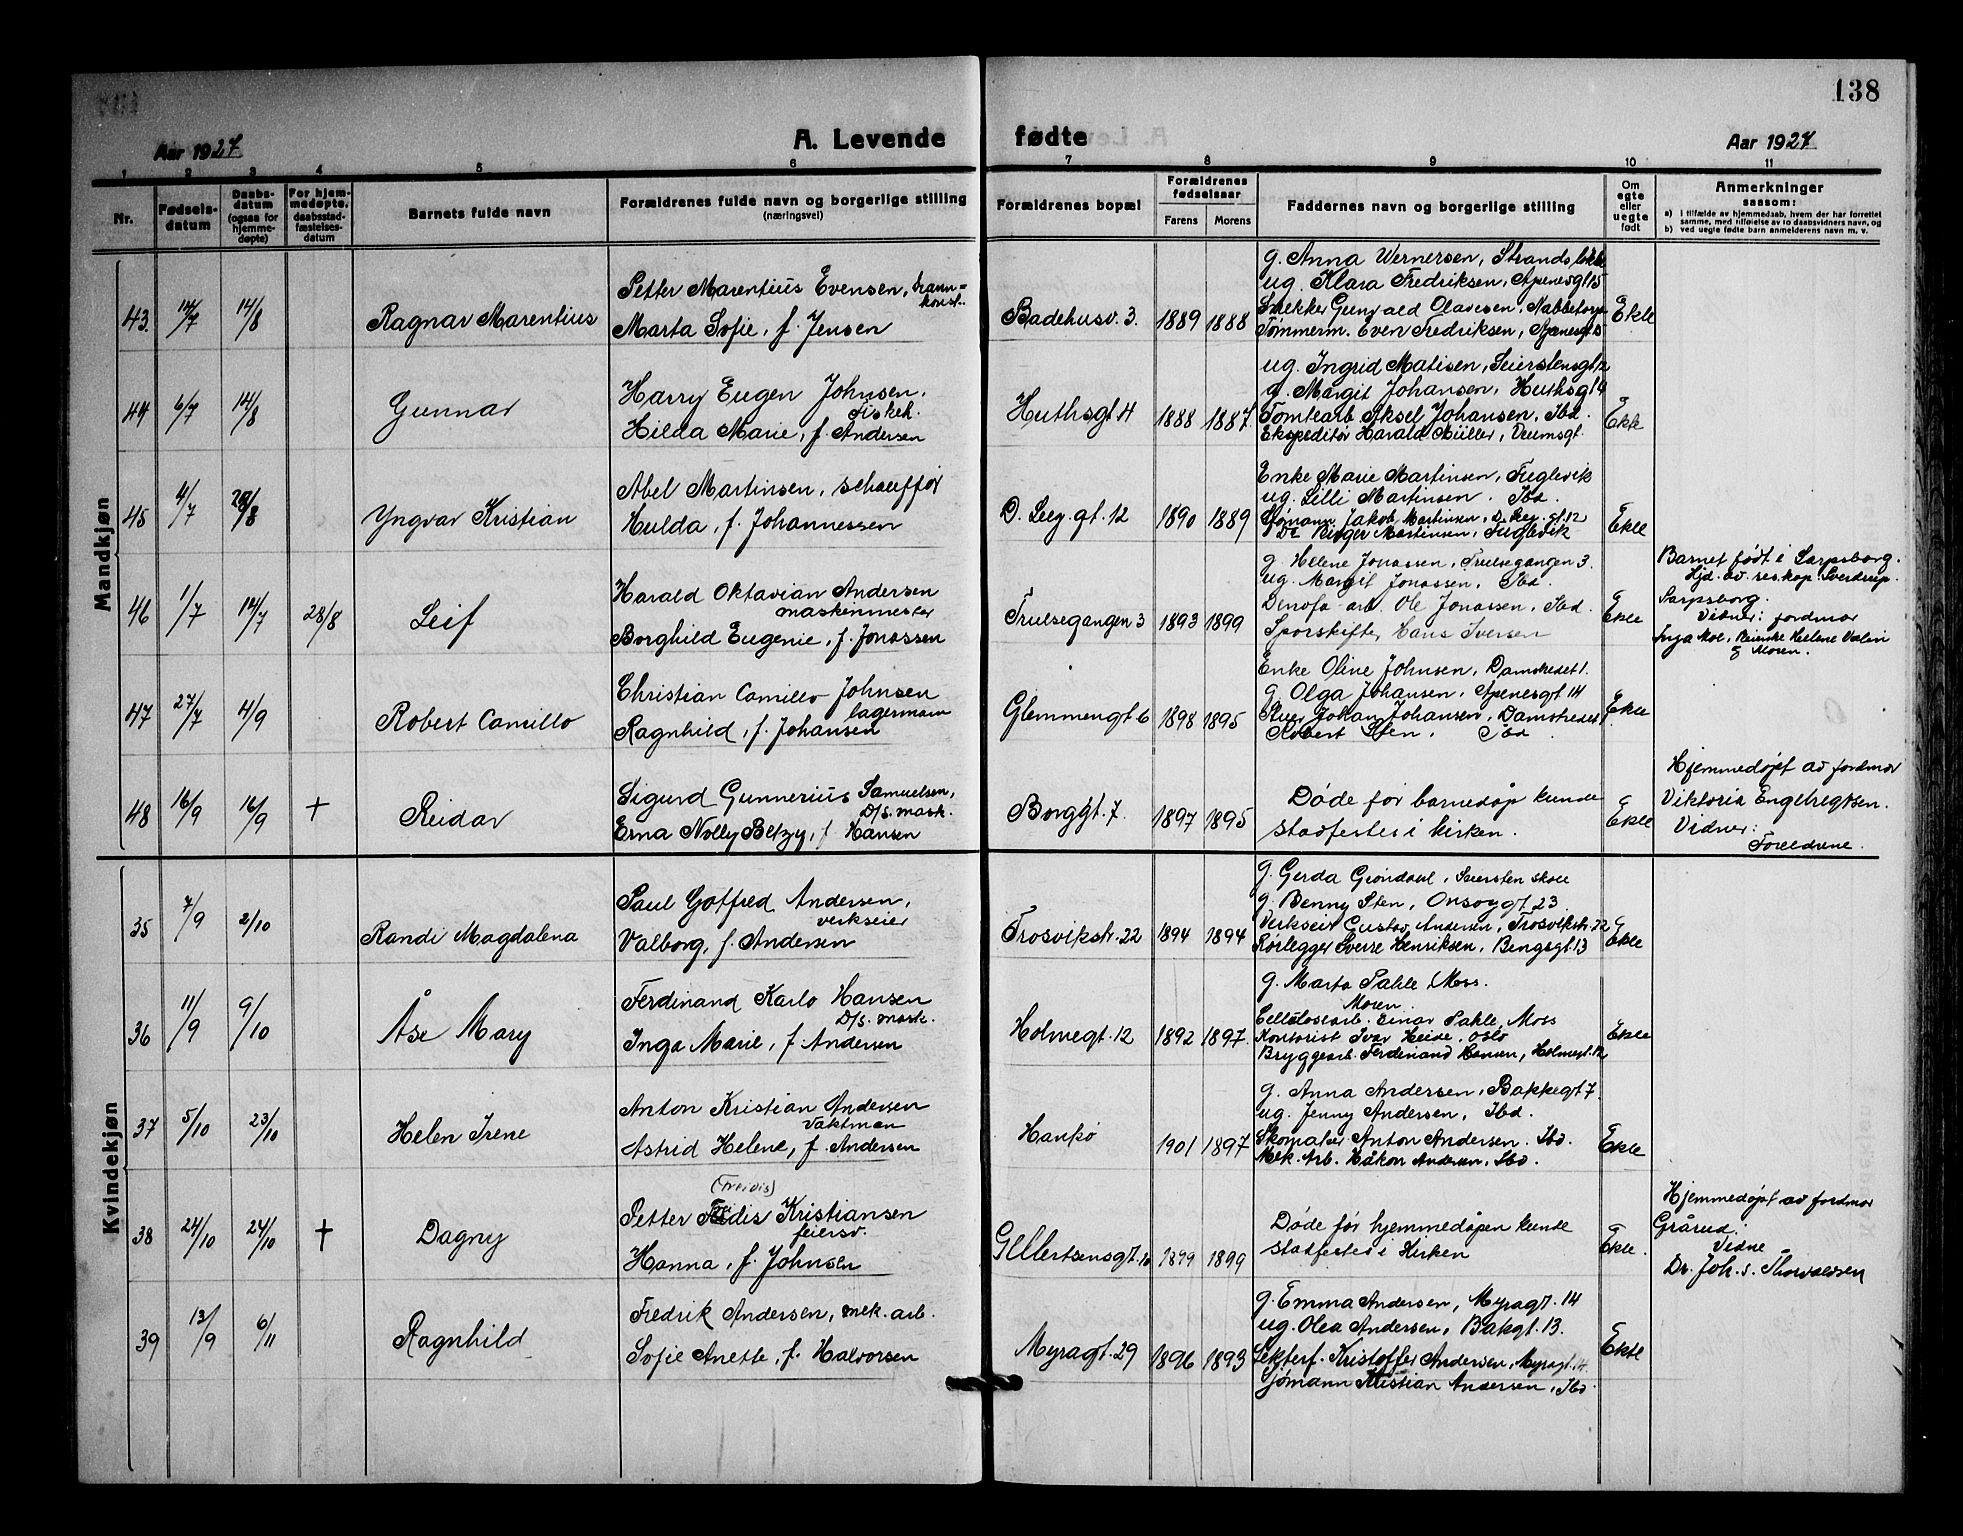 138
A. Levende fødte
Aar 1927
Aar 1927
1 2 3 4 5 6 7 8 9 10 11
Nr.
Fødsels-
datum
Daabs-
datum
(ogsaa for
hjemme-
døpte)
For hjem-
medøpte,
daabsstad-
fæstelses-
datum
Barnets fulde navn
Forældrenes fulde navn og borgerlige stilling
(næringsvei)
Forældrenes bopæl
Forældrenes
fødselsaar
Farens Morens
Faddernes navn og borgerlige stilling
Om
egte
eller
uegte
født
Anmerkninger
saasom:
a) i tilfælde av hjemmedaab, hvem der har forrettet
samme, med tilføielse av to daabsvidners navn, og
b) ved uegte fødte barn anmelderens navn m. v.
Mandkjøn
43. 14/7 14/8 Ragnar Marentius
Petter Marentius Evensen, brann=
konst.
Marta Sofie, f. Jensen
Badehusv. 3. 1889 1888
g. Anna Wernersen, Strandsløkke
ug. Klara Fredriksen, Apenesgt 15
Snekker Gunvald Olavesen, Nabbetorp
Tømmerm. Even Fredriksen, Apenesgt 5
Ekte
44 6/7 14/8 Gunnar
Harry Eugen Johnsen,
fiskeh.
Hilda Marie, f. Andersen
Huthsgt 4 1888 1887.
ug. Ingrid Matisen, Seierstensgt 12
g. Margit Johansen, Huthsgt 4
Tomtearb Aksel Johansen, Ibd.
Ekspeditør Harald Müller, Veumsgt.
Ekte
45 4/7 28/8 Yngvar Kristian
Abel Martinsen, schauffør
Hulda, f. Johannessen
D. Leeg. gt. 12 1890 1889
Enke Marie Martinsen, Fuglevik
ug. Lilli Martinsen. Ibd.
Sjømann Jakob Martinsen, D. Leg. gt. 12
Do Birger Martinsen, Fuglevik
Ekte
46 1/7 14/7 28/8 Leif
Harald Oktavian Andersen
maskinmester
Borghild Eugenie, f. Jonassen
Trulsegangen 3 1893 1899
g. Helene Jonassen, Trulsegangen 3.
ug. Margit Jonassen, Ibd
Denofa-arb. Ole Jonassen, Ibd.
Sporskifter Hans Iversen
Ekte
Barnet født i Sarpsborg.
Hjd. av res. kap. Sverdrup.
Sarpsborg.
Vidner: jordmor
Inga Moe, Helene
& Moren.
47 27/7 4/9 Robert Camillo
Christian Camillo Johnsen
lagermann
Ragnhild, f. Johansen
Glemmengt 6 1898 1895
Enke Oline Johnsen, Damstredet 1.
g. Olga Johansen, Apenesgt 14
Stuer Johan Johansen, Damstredet 1
Robert Sten, Ibd.
Ekte
48 16/9 16/9 † Reidar
Sigurd Gunnerius Samuelsen,
D/s. mask.
Erna Nolly Betzy, f Hansen
Borggt. 7. 1897 1895
Døde før barnedåp kunde
stadfestes i kirken.
Ekte
Hjemmedøpt av jordmor
Viktoria Engebregtsen.
Vidner:
Foreldrene.
Kvindekjøn
35 7/9 2/10 Randi Magdalena
Paul Gotfred Andersen,
verkseier
Valborg, f. Andersen
Trosvikstr. 22 1894 1894
g. Gerda Grøndahl, Seiersten skole
g. Benny Sten, Onsøygt 23
Verkseier Gustav Andersen, Trosvikstr. 22
Rørlegger Sverre Henriksen, Bengsgt. 13
Ekte
36 11/9 9/10 Åse Mary
Ferdinand Karlo Hansen
D/s. mask.
Inga Marie, f. Andersen
Holmegt. 12 1892 1897.
g. Marta Pahle, Moss.
Moren
Cellulosearb. Einar Pahle, Moss
Kontorist Ivar Heide, Oslo
Bryggearb. Ferdinand Hansen, Holmegt. 12
Ekte
37 5/10 23/10 Helen Irene
Anton Kristian Andersen
Vaktman
Astrid Helene, f. Andersen
Hankø 1901 1897
g. Anna Andersen, Bakkegt 7.
ug. Jenny Andersen, Ibd.
Skomaker Anton Andersen. Ibd.
Mek. Arb. Håkon Andersen, Ibd.
Ekte
38 24/10 24/10 † Dagny
(Freidis)
Petter Kristiansen
feiersv.
Hanna, f. Johnsen
Gellertsensgt. 10 1899 1899
Døde før hjemmedåpen kunde
stadfestes i Kirken
Ekte.
Hjemmedøpt av jordmor
Grårud,
Vidne
Dr. Joh. S. Thorvaldsen
39 13/9 6/11 Ragnhild
Fredrik Andersen, mek. arb.
Sofie Anette, f. Halvorsen
Myragt. 29 1896 1893
g. Emma Andersen, Myragt. 14
ug. Olea Andersen, Bakgt. 13.
Lekterf. Kristoffer Andersen, Myragt. 14
Sjømann Kristian Andersen, Ibd.
Ekte